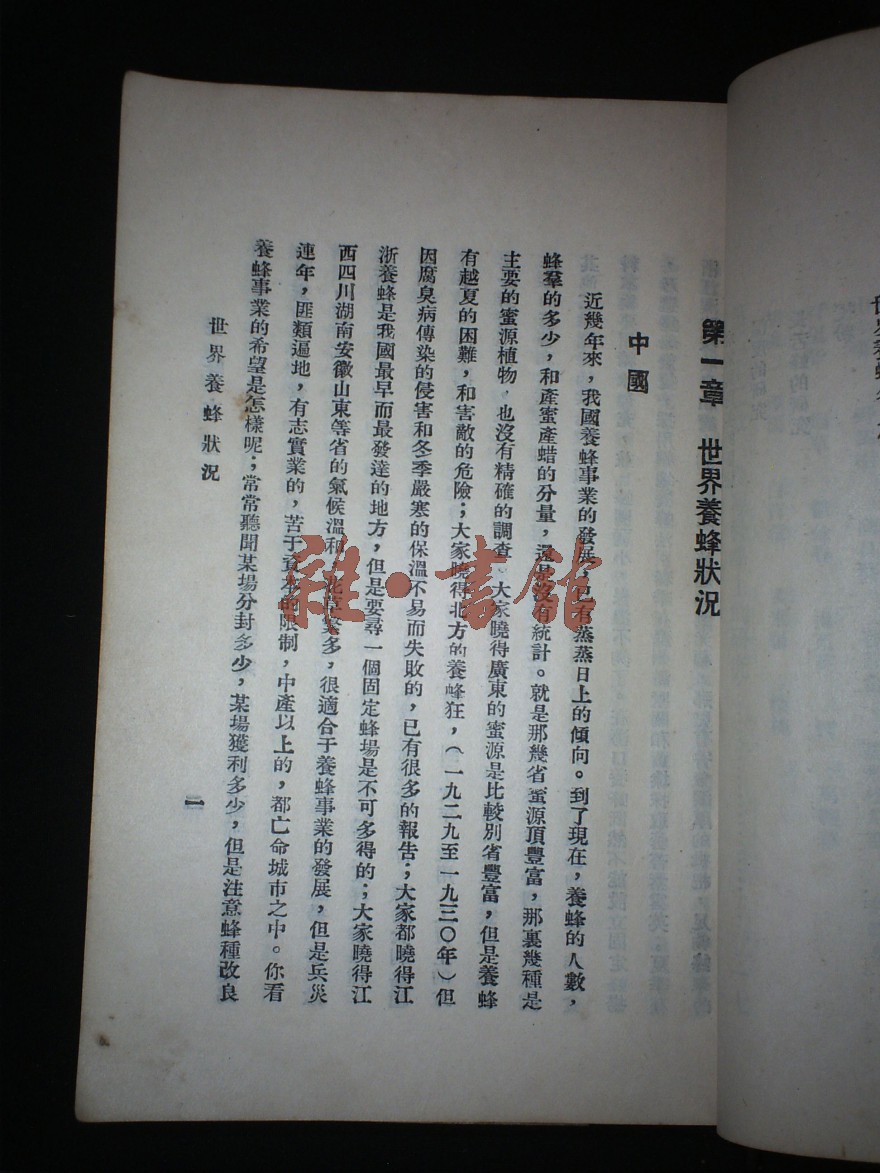 第一章　世界養蜂狀況
中國
近幾年來，我國養蜂事業的發展，已有蒸蒸日上的傾向。到了現在，養蜂的人數，
蜂羣的多少，和產蜜產蜡的分量，還是沒有統計。就是那幾省蜜源頂豐富，那裏幾種是
主要的蜜源植物，也沒有精確的調查。大家曉得廣東的蜜源是比較別省豐富，但是養蜂
有越夏的困難，和害敵的危險；大家曉得北方的養蜂狂，（一九二九至一九三〇年）但
因腐臭病傳染的侵害和冬季嚴寒的保溫不易而失敗的，已有很多的報告；大家都曉得江
浙養蜂是我國最早而最發達的地方，但是要尋一個固定蜂場是不可多得的；大家曉得江
西四川湖南安徽山東等省的氣候溫和，花草衆多，很適合于養蜂事業的發展，但是兵災
連年，匪類遍地，有志實業的，苦于資本的限制，中產以上的，都亡命城市之中。你看
養蜂事業的希望是怎樣呢；常常聽聞某場分封多少，某場獲利多少，但是注意蜂種改良
世界養蜂狀況
一
雜·書館